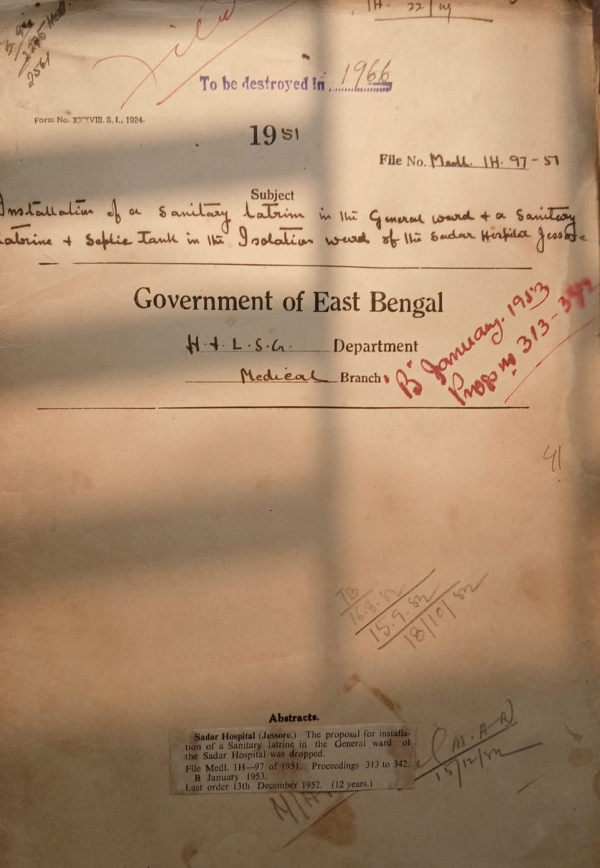 1H. 22/
2275 Medl.
2561
Filed
To be destroyed in 1966
Form No. XXXVIII. S. I., 1924.
1951
File No. Medl. 1H-97-51
Subject
Installation of a Sanitary latrine in the General ward & a Sanitary
latrine & Septic Tank in the Isolation ward of the Sadar Hospital Jessore
Government of East Bengal
H. & L. S. G. Department
Medical Branch.
"B" January. 1953
Progs no 313-342
41
TB
16.8.52
15.9.52
18/10/52
Abstracts.
Sadar Hospital (Jessore.) The proposal for installa-
tion of a Sanitary latrine in the General ward of
the Sadar Hospital was dropped.
File Medl. 1H—97 of 1951. Proceedings 313 to 342.
B January 1953.
Last order 13th December 1952. (12 years.)
(M.A.R)
15/12/52